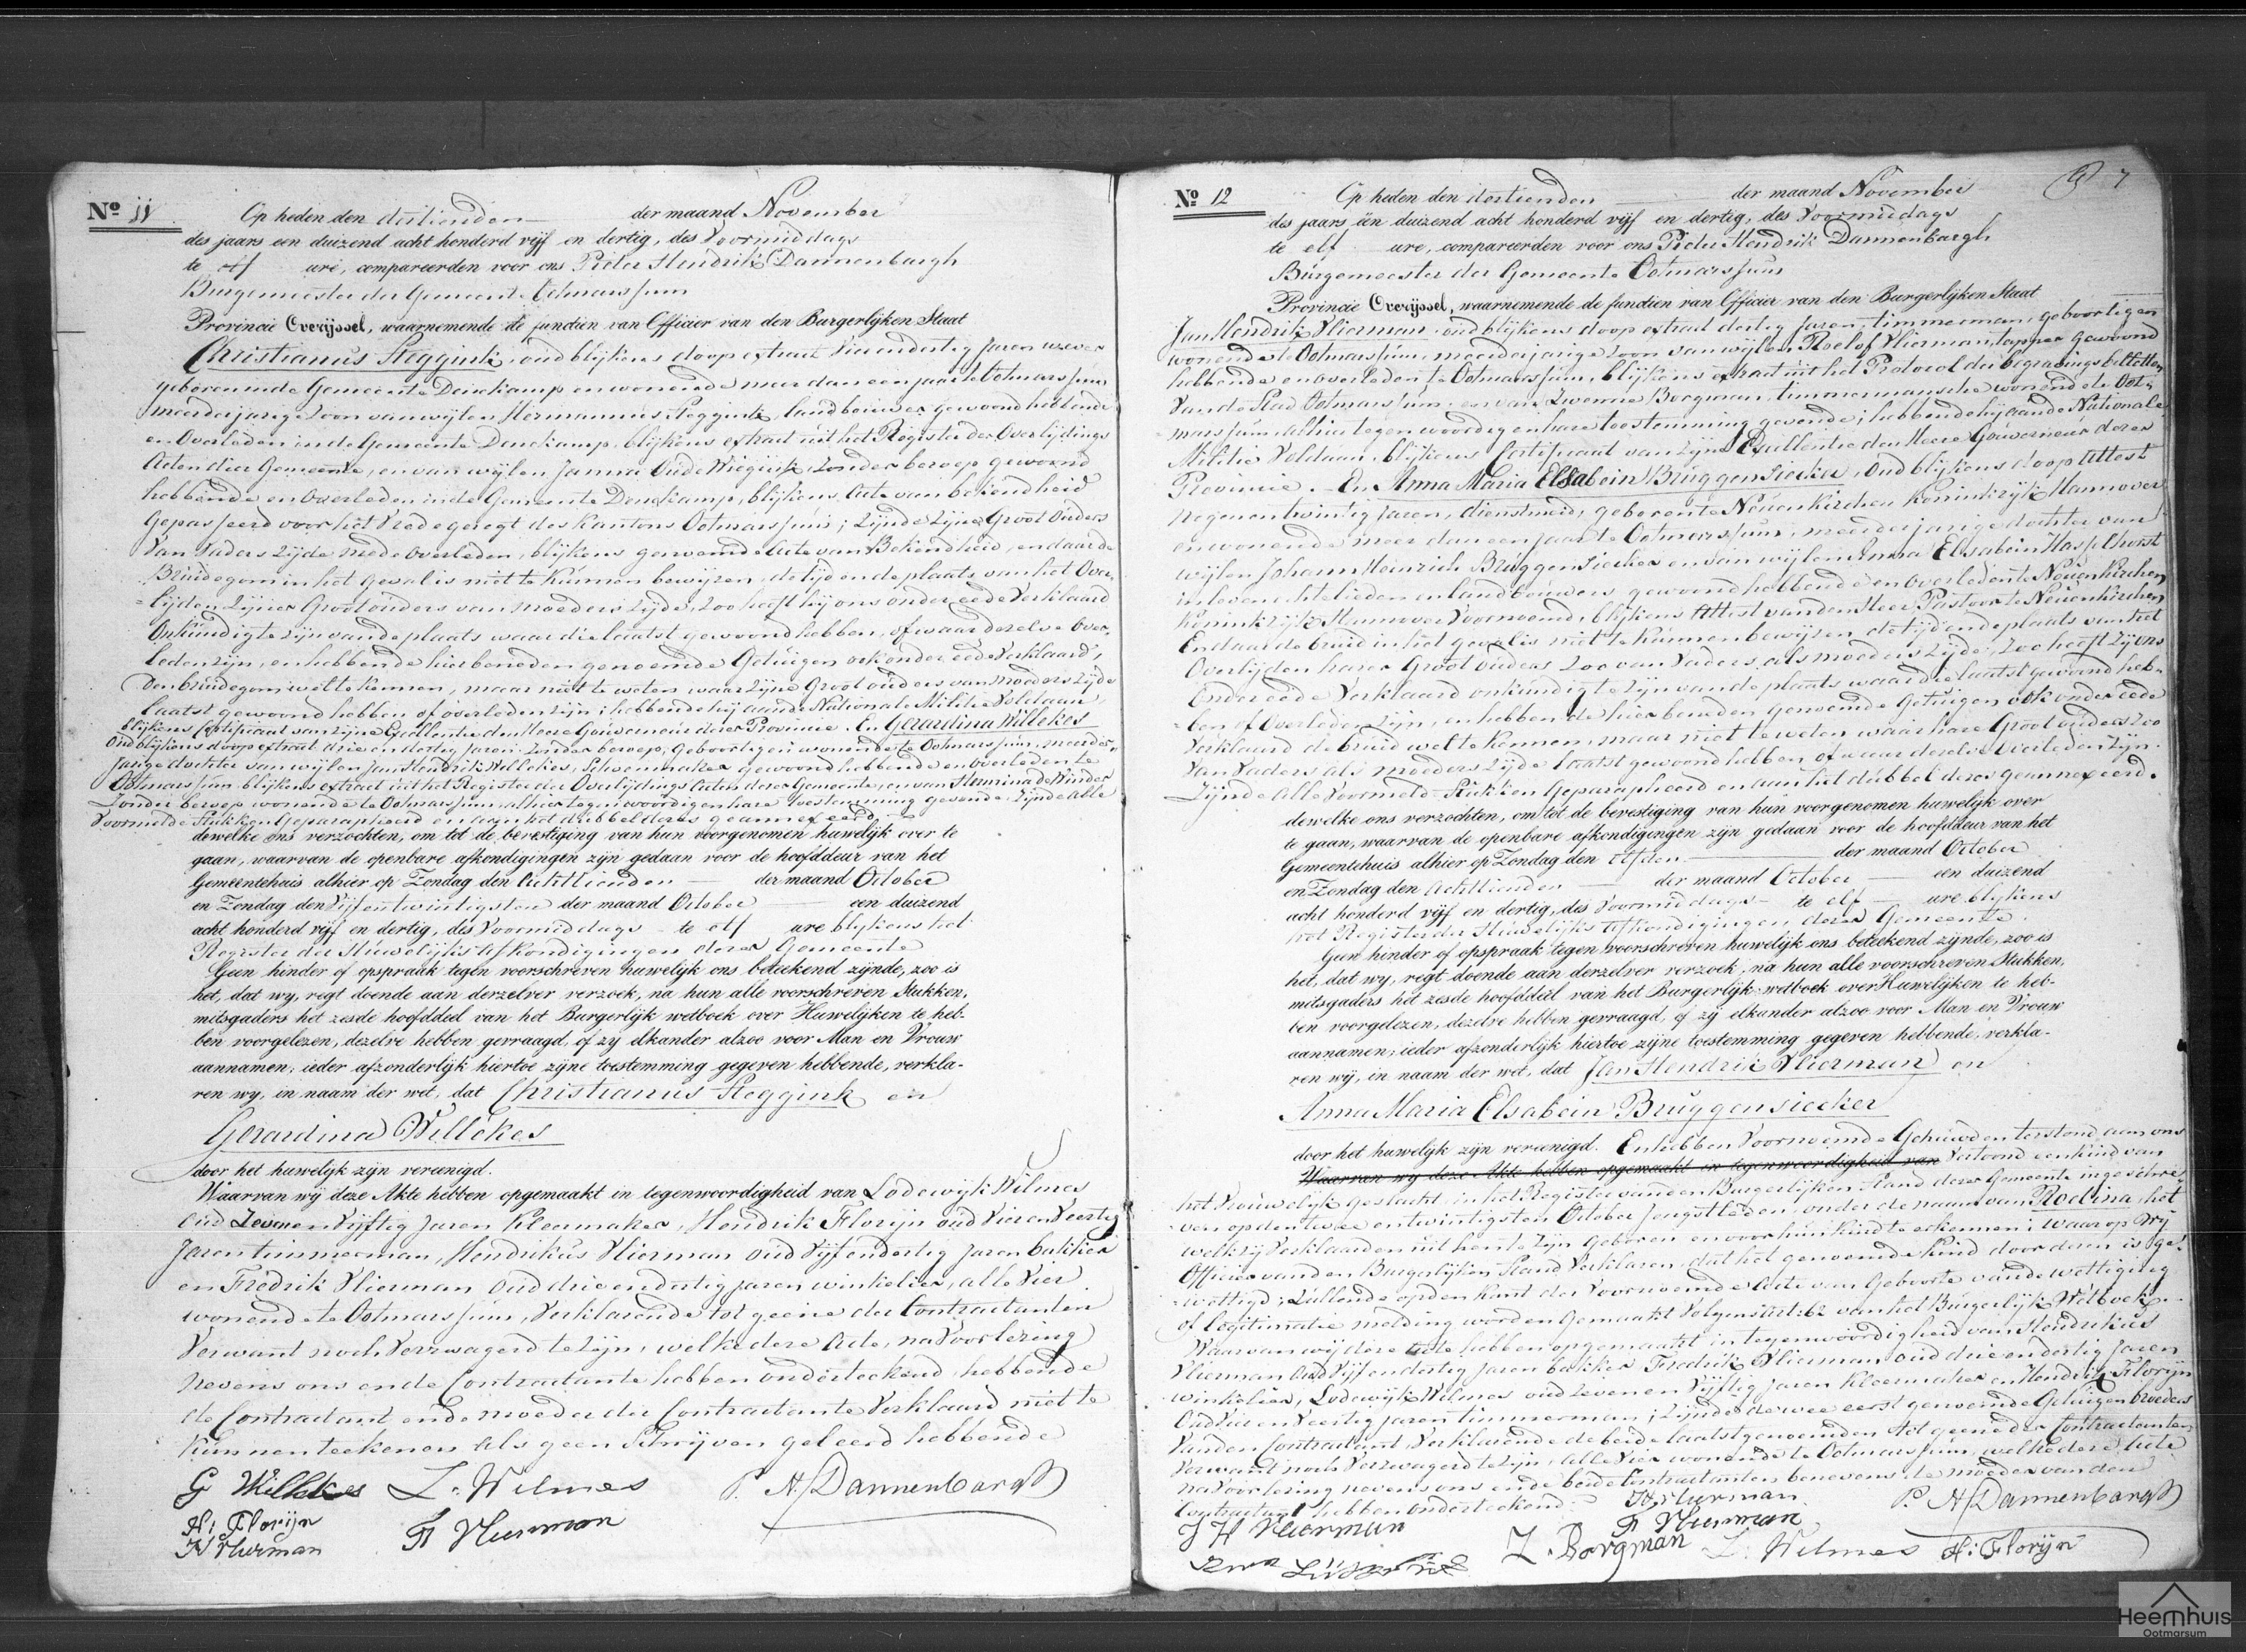 No 11
Op heden den dertienden der maand November
des jaars een duizend acht honderd vijf en dertig, des Voormiddags
te elf ure, compareerden voor ons Pieter Hendrik Dannenbargh
Burgemeester der Gemeente Ootmarssum
Provincie Overijssel, waarnemende de functien van Officier van den Burgerlijken Staat
Christianus Steggink, oud blijkens doop extract Vierendertig Jaren wever
geboren in de Gemeente Denekamp en wonende meer dan een jaar te Ootmarssum
meerderjarige Zoon van wijlen Hermannus Steggink, landbouwer gewoond hebbende
en Overleden in de Gemeente Denekamp, blijkens extract uit het Register der Overlijdings
Acten dier Gemeente, en van wijlen Janna Oude Wiegink, zonder beroep gewoond
hebbende en Overleden in de Gemeente Denekamp, blijkens Acte van bekendheid
Gepasseerd voor het Vredegeregt des Kantons Ootmarssum; Zijnde Zijne Groot Ouders
Van Vaders Zijde mede Overleden, blijkens genoemde Acte van Bekendheid, en daar de
Bruidegom in het geval is niet te kunnen bewijzen, de tijd en de plaats van het Over-
lijden Zijner Groot ouders van moeders Zijde, zoo heeft hij ons onder eede Verklaard
Onkundig te zijn van de plaats waar die laatst gewoond hebben, of waar dezelve Over-
leden zijn, en hebbende hier beneden genoemde Getuigen ook onder eede Verklaard,
Den bruidegom wel te kennen, maar niet te weten waar Zijne Groot ouders van moeders Zijde
laatst gewoond hebben of overleden zijn; hebbende hij aan de Nationale Militie Voldaan
blijkens Certificaat van Zijne Excellentie den Heere Gouverneur dezer Provincie. En Gerardina Willekes
Oud blijkens doop extract drie en dertig Jaren, Zonder beroep, Geboortig en wonende te Ootmarssum, meerder-
jarige dochter van wijlen Jan Hendrik Willekes, Schoenmaker gewoond hebbende en overleden te
Ootmarssum blijkens extract uit het Register der Overlijdings Acten dezer Gemeente, en van Hermina de Winder
Zonder beroep wonende te Ootmarssum, alhier tegenwoordig en hare toestemming gevende, Zijnde Alle
Voormelde Stukken Geparapheerd en aan het dubbel dezes geannexeerd
dewelke ons verzochten, om tot de bevestiging van hun voorgenomen huwelijk over te
gaan, waarvan de openbare afkondigingen zijn gedaan voor de hoofddeur van het
Gemeentehuis alhier op Zondag den Achttienden der maand October
en Zondag den Vijfentwintigsten der maand October een duizend
acht honderd vijf en dertig, des Voormiddags te elf ure blijkens het
Register der Huwelijks Afkondigingen dezer Gemeente
Geen hinder of opspraak tegen voorschreven huwelijk ons beteekend zijnde, zoo is
het, dat wy, regt doende aan derzelver verzoek, na hun alle voorschreven Stukken,
mitsgaders het zesde hoofddeel van het Burgerlijk wetboek over Huwelijken te heb-
ben voorgelezen, dezelve hebben gevraagd, of zy elkander alzoo voor Man en Vrouw
aannamen; ieder afzonderlijk hiertoe zijne toestemming gegeven hebbende, verkla-
ren wy, in naam der wet, dat Christianus Steggink en
Gerardina Willekes
door het huwelijk zijn vereenigd.
Waarvan wij deze Akte hebben opgemaakt in tegenwoordigheid van Lodewijk Wilmes
Oud Zevenen Vijftig Jaren Kleermaker, Hendrik Florijn oud Vier en Veertig
Jaren timmerman, Hendrikus Vlierman oud Vijfendertig Jaren bakker
en Fredrik Vlierman oud drie en dertig jaren winkelier, alle Vier
wonende te Ootmarssum, Verklarende tot geene der Contractanten
Verwant noch Verzwagerd te zijn, welke deze Acte, na Voorlezing
nevens ons en de Contractante hebben onderteekend, hebbende
de Contractant en de moeder der Contractante Verklaard niet te
kunnen teekenen als geen Schrijven geleerd hebbende
G Willekes L. Wilmes P. H. Dannenbargh
H: Florijn
H Vlierman F Vlierman
No 12
7
Op heden den dertienden der maand November
des jaars één duizend acht honderd vijf en dertig, des Voormiddags
te elf ure, compareerden voor ons Pieter Hendrik Dannenbargh
Burgemeester der Gemeente Ootmarssum
Provincie Overijssel, waarnemende de functien van Officier van den Burgerlijken Staat
Jan Hendrik Vlierman, oud blijkens doop extract dertig Jaren, timmerman, geboortig en
wonende te Ootmarssum, meerderjarige Zoon van wijlen Roelof Vlierman, tapper gewoond
hebbende en overleden te Ootmarssum, blijkens extract uit het Protocol der begravings billetten
Van de Stad Ootmarssum, en van Zwenne Borgman, timmermansche wonende te Oot-
marssum, alhier tegenwoordig en hare toestemming gevende; hebbende hij aan de Nationale
Militie Voldaan, blijkens Certificaat van Zijne Excellentie den Heere Gouverneur dezer
Provincie. En Anna Maria Elsabein Bruggensiecker, Oud blijkens doop Attest
Negenentwintig Jaren, dienstmeid, geboren te Neuenkirchen Koninkrijk Hannover
en wonende meer dan een jaar te Ootmarssum, meerderjarige dochter van
wijlen Johann Heinrich Bruggensiecker en van wijlen Anna Elsabein Haspelhorst
in leven echtelieden en landbouwers gewoond hebbende en overleden te Neuenkirchen
Koninkrijk Hannover Voornoemd, blijkens Attest van den Heer Pastoor te Neuenkirchen
En daar de bruid in het geval is niet te kunnen bewijzen de tijd en de plaats van het
Overlijden harer Groot ouders zoo van Vaders als moeders Zijde, Zoo heeft Zij ons
Onder eede Verklaard onkundig te zijn van de plaats waar die laatst gewoond heb-
ben of Overleden zijn, en hebbende hier beneden genoemde Getuigen ook onder eede
Verklaard de bruid wel te kennen, maar niet te weten waar hare Groot ouders zoo
Van Vaders als moeders Zijde laatst gewoond hebben of waar dezelve Overleden zijn.
Zijnde Alle Voormelde Stukken Geparapheerd en aan het dubbel dezes geannexeerd.
dewelke ons verzochten, om tot de bevestiging van hun voorgenomen huwelijk over
te gaan, waarvan de openbare afkondigingen zijn gedaan voor de hoofddeur van het
Gemeentehuis alhier op Zondag den elfden der maand October
en Zondag den achttienden der maand October een duizend
acht honderd vijf en dertig, des Voormiddags te elf ure blijkens
het Register der Huwelijks Afkondigingen dezer Gemeente.
Geen hinder of opspraak tegen voorschreven huwelijk ons beteekend zijnde, zoo is
het, dat wy, regt doende aan derzelver verzoek, na hun alle voorschreven Stukken,
mitsgaders het zesde hoofddeel van het Burgerlijk wetboek over Huwelijken te heb-
ben voorgelezen, dezelve hebben gevraagd, of zij elkander alzoo voor Man en Vrouw
aannamen; ieder afzonderlijk hiertoe zijne toestemming gegeven hebbende, verkla-
ren wij, in naam der wet, dat Jan Hendrik Vlierman en
Anna Maria Elsabein Bruggensiecker
door het huwelijk zijn vereenigd. En hebben Voornoemde Gehuwden terstond aan ons
Waarvan wy deze Akte hebben opgemaakt in tegenwoordigheid van Vertoond een kind van
het Vrouwelijk geslacht, in het Register van den Burgerlijken Stand dezer Gemeente ingeschre-
ven op den twee entwintigsten October Jongstleden, onder de naam van Rodina, het
welk zij Verklaarden uit hen te zijn geboren en voor hun kind te erkennen; waarop wij
Officier van den Burgerlijken Stand Verklaren, dat het genoemde kind door dezen is ge-
wettigd; Zullende op den kant der Voornoemde Acte van Geboorte van de wettiging
of legitimatie melding worden Gemaakt Volgens Art: 62 van het Burgerlijk Wetboek.
Waarvan wij deze acte hebben opgemaakt in tegenwoordigheid van Hendrikus
Vlierman Oud Vijfendertig Jaren bakker Fredrik Vlierman oud drie en dertig Jaren
winkelier, Lodewijk Wilmes oud Zevenen Vijftig Jaren Kleermaker en Hendrik Florijn
Oud Vier en Veertig Jaren timmerman; Zijnde de twee eerst genoemde Getuigen broeders
Van den Contractant, Verklarende de beide laatstgenoemden tot geene der Contractanten
Verwant noch Verzwagerd te zijn, alle Vier wonende te Ootmarssum, welke deze Acte
na Voorlezing nevens ons en de beide Contractanten benevens de moeder van den
Contractant hebben onderteekend.
H Vlierman P. H. Dannenbargh
J H Vlierman F Vlierman
Z. Borgman L. Wilmes H: Florijn
Heemhuis
Ootmarsum